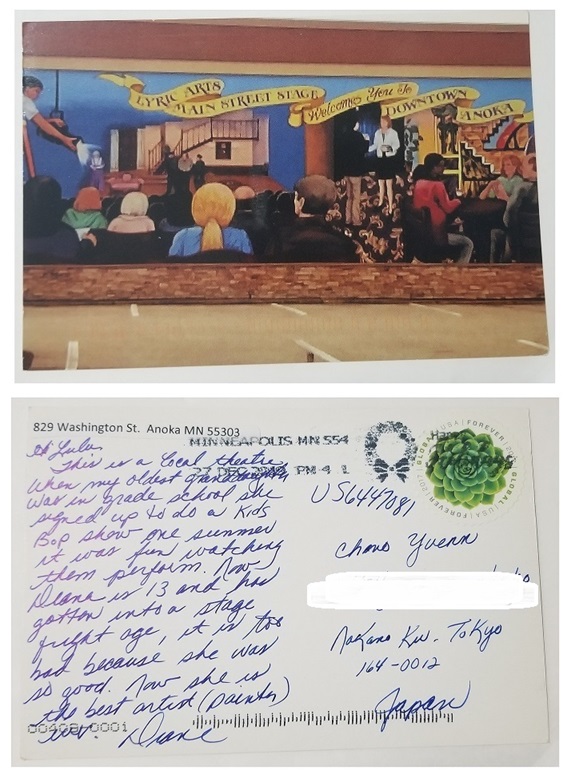 LYRIC ARTS
MAIN STREET STAGE
Welcomes You To
DOWNTOWN
ANOKA
829 Washington St. Anoka MN 55303
MINNEAPOLIS MN 554
27 DEC PM 4 L
GLOBAL | USA | FOREVER | 2017
GLOBAL | USA | FOREVER
Hi Lulu
This is a local theatre
When my oldest granddaughter
was in grade school she
signed up to do a Kids
Bop show one summer
it was fun watching
them perform. Now
is 13 and has
gotten into a stage
fright age, it is too
bad because she was
so good. Now she is
the best artist (painter)
ever. Diane
US6447081
Chono
Nakano Ku. Tokyo
164-0012
Japan